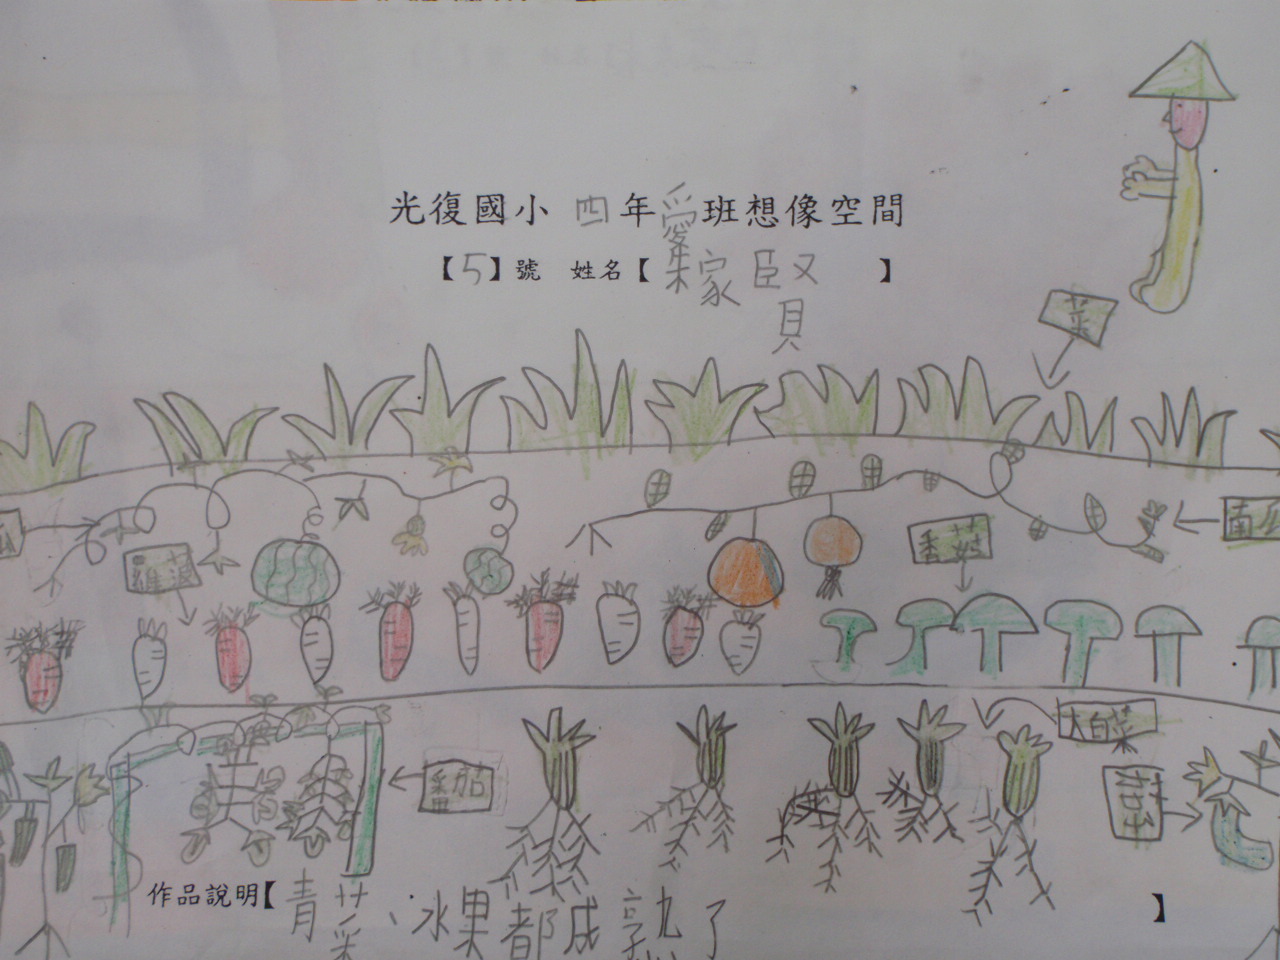 光復國小 四年愛班想像空間
【5】號 姓名【朱家賢】
菜
南瓜
香菇
蘿蔔
瓜
大白菜
番茄
作品說明【青菜、水果都成熟了】